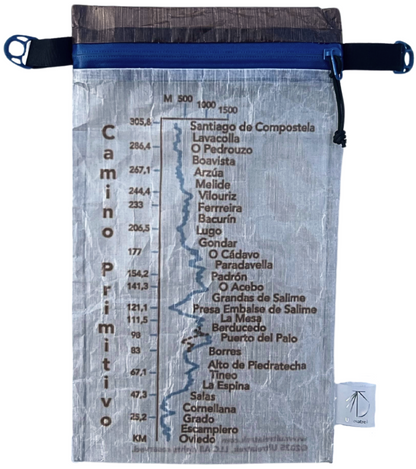 M 500 1000 1500
Camino Primitivo
305,8
286,4
267,1
244,4
233
206,5
177
154,2
141,3
121,1
111,5
98
83
67,1
47,3
25,2
KM
Santiago de Compostela
Lavacolla
O Pedrouzo
Boavista
Arzúa
Melide
Vilouriz
Ferrreira
Bacurín
Lugo
Gondar
O Cádavo
Paradavella
Padrón
O Acebo
Grandas de Salime
Presa Embalse de Salime
La Mesa
Berducedo
Puerto del Palo
Borres
Alto de Piedratecha
Tineo
La Espina
Salas
Cornellana
Grado
Escampiero
Oviedo